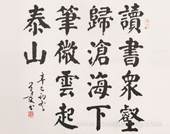 讀書眾壑
歸滄海下
筆微雲起
泰山